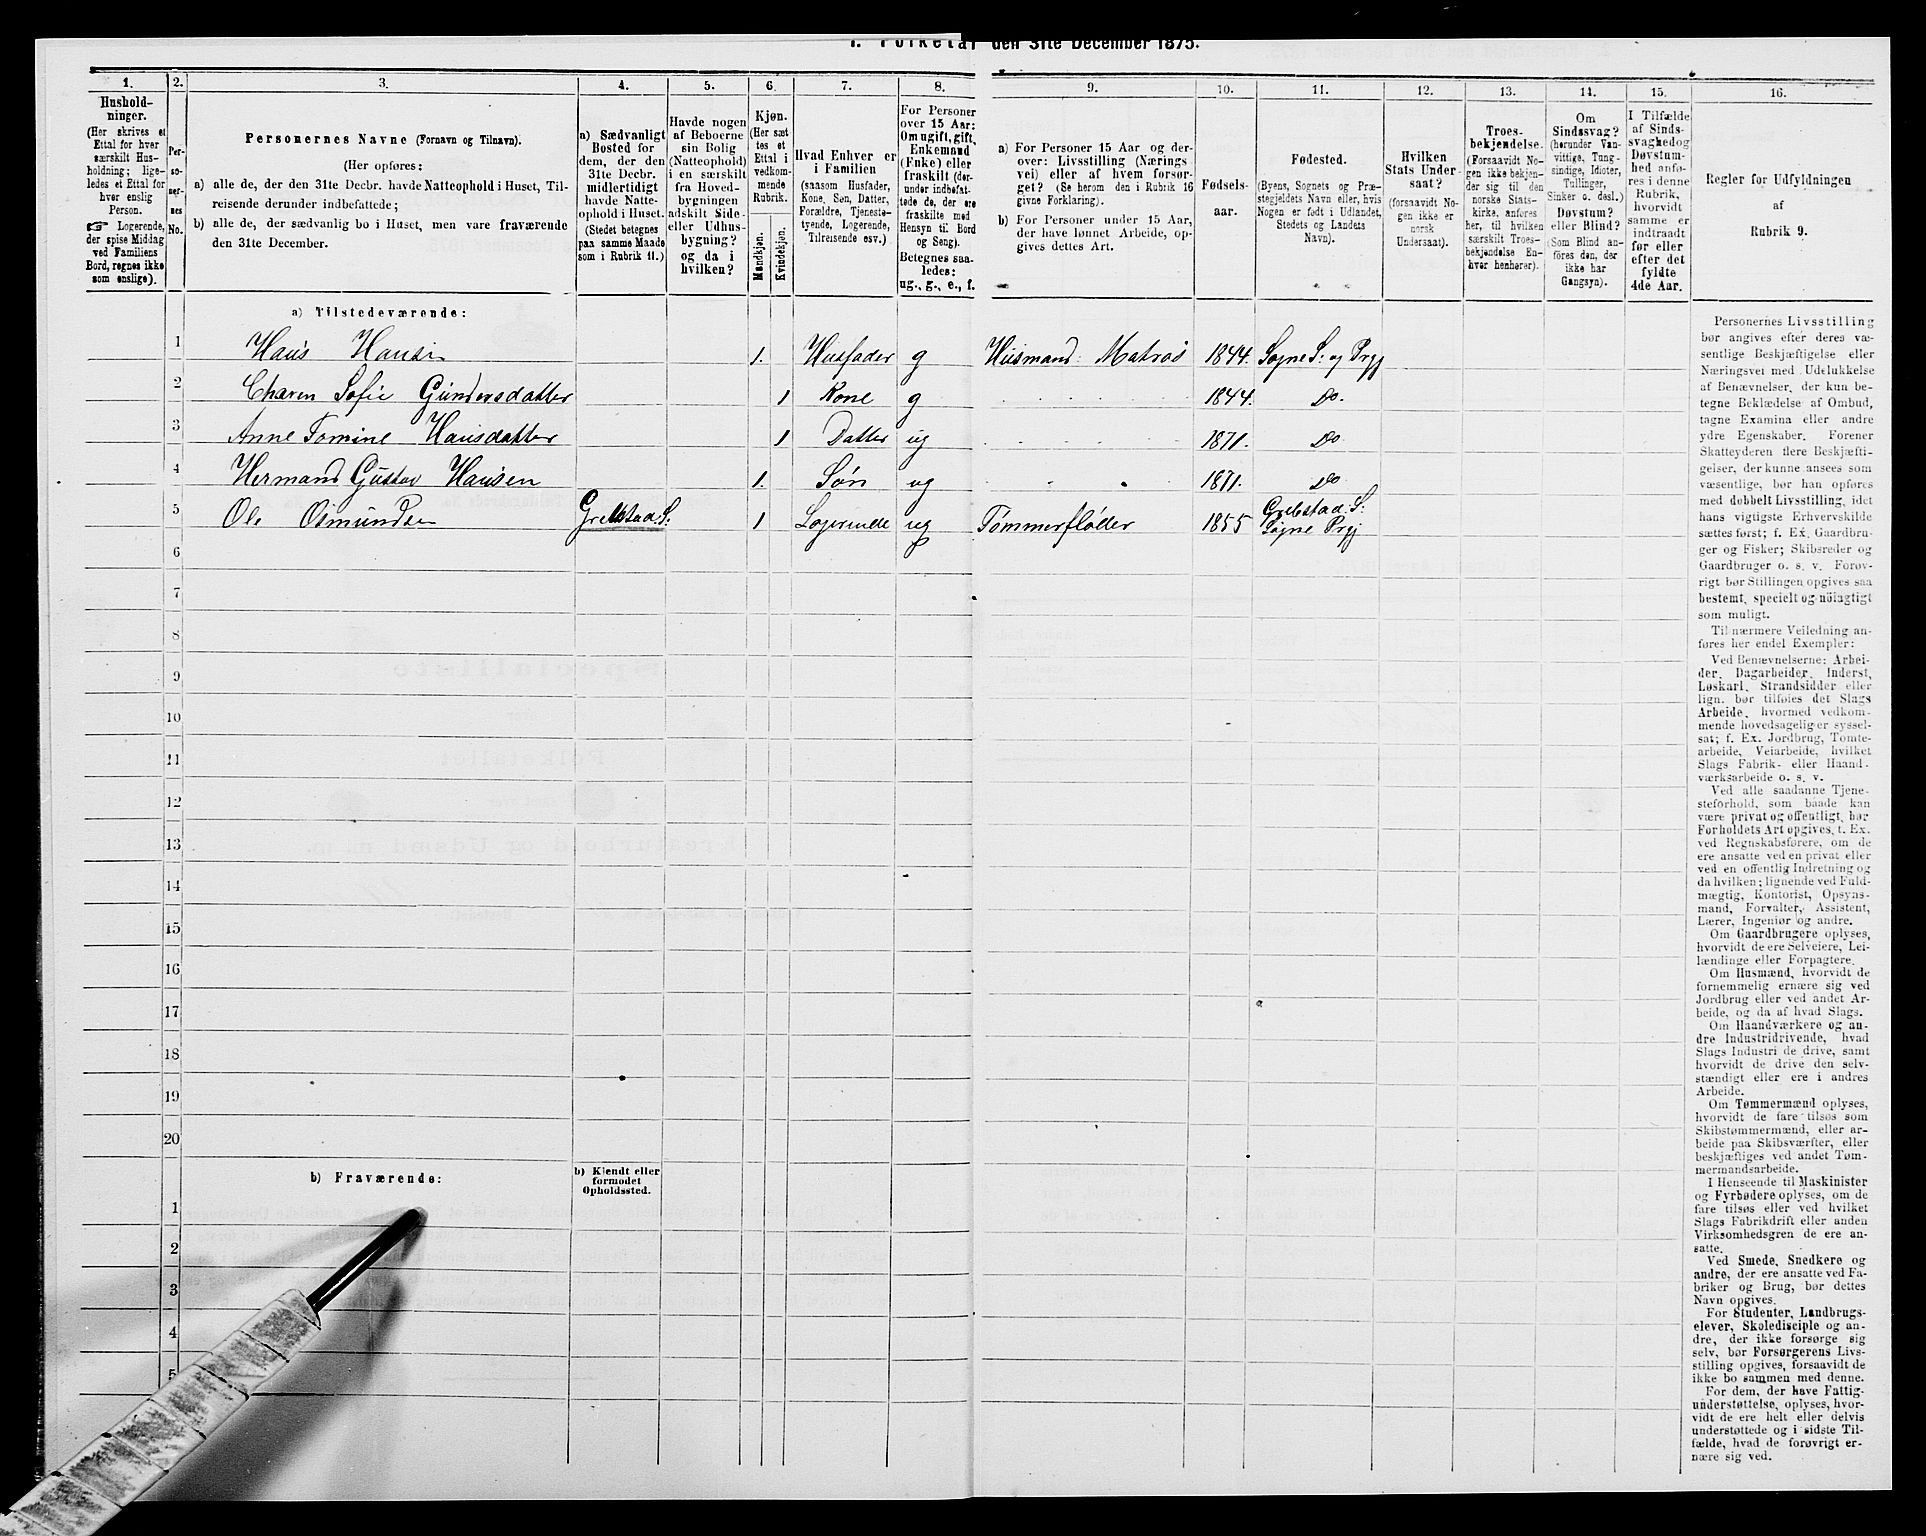 I. Folketal den 31te December 1875.
1.
Hushold-
ninger.
(Her skrives et
Ettal for hver
særskilt Hus-
holdning; lige-
ledes et Ettal for
hver enslig
Person.
☞ Logerende,
der spise Middag
ved Familiens
Bord, regnes ikke
som enslige).
2.
Per-
so-
ner-
nes
No.
3.
Personernes Navne (Fornavn og Tilnavn).
(Her opføres:
a) alle de, der den 31te Decbr. havde Natteophold i Huset, Til-
reisende derunder indbefattede;
b) alle de, der sædvanlig bo i Huset, men vare fraværende
den 31te December.
4.
a) Sædvanligt
Bosted for
dem, der den
31te Decbr.
midlertidigt
havde Natte-
ophold i Huset.
(Stedet betegnes
paa samme Maade
som i Rubrik 11.)
5.
Havde nogen
af Beboerne
sin Bolig
(Natteophold)
i en særskilt
fra Hoved-
bygningen
adskilt Side-
eller Udhus-
bygning?
og da i
hvilken?
6.
Kjøn.
(Her sæt
tes et
Ettal i
vedkom-
mende
Rubrik.
Mandkjøn.
Kvindekjøn.
7.
Hvad Enhver er
i Familien
(saasom Husfader,
Kone, Søn, Datter,
Forældre, Tjeneste-
tyende, Logerende,
Tilreisende osv.)
8.
For Personer
over 15 Aar:
Om ugift, gift,
Enkemand
(Enke) eller
fraskilt (der-
under indbefat-
tede de, der ere
fraskilte med
Hensyn til Bord
og Seng).
Betegnes saa-
ledes:
ug., g., e., f.
9.
a) For Personer 15 Aar og der-
over: Livsstilling (Nærings
vei) eller af hvem forsør-
get? (Se herom den i Rubrik 16
givne Forklaring).
b) For Personer under 15 Aar,
der have lønnet Arbeide, op-
gives dettes Art.
10.
Fødsels-
aar.
11.
Fødested.
(Byens, Sognets og Præ-
stegjeldets Navn eller, hvis
Nogen er født i Udlandet,
Stedets og Landets
Navn).
12.
Hvilken
Stats Under-
saat?
(forsaavidt No-
gen ikke er
norsk
Undersaat).
13.
Troes-
bekjendelse.
(Forsaavidt No-
gen ikke bekjen-
der sig til den
norske Stats-
kirke, anføres
her, til hvilken
særskilt Troes-
bekjendelse En-
hver henhører).
14.
Om
Sindssvag?
(herunder Van-
vittige, Tung-
sindige, Idioter,
Tullinger,
Sinker o. desl.)
Døvstum?
eller Blind?
(Som Blind an-
føres den, der
ikke har
Gangsyn).
15.
I Tilfælde
af Sinds-
svaghed og
Døvstum-
hed anfø-
res i denne
Rubrik,
hvorvidt
samme er
indtraadt
før eller
efter det
fyldte
4de Aar.
16.
Regler for Udfyldningen
af
Rubrik 9.
a) Tilstedeværende:
1 Hans Hansen 1. Husfader g Husmand: Matros 1844. Søgne S: og Prgj
2 Charen Sofie Gundersdatter 1 Kone g 1844. Do.
3 Anne Tomine Hansdatter 1 Datter ug 1871. Do
4 Hermand Gustav Hansen 1. Søn ug 1871. Do
5 Ole Osmundsen Grebstad. S: 1 Logerende ug Tømmerfløder 1855 Grebstad. S: Søgne Prgj
6
7
8
9
10
11
12
13
14
15
16
17
18
19
20
b) Fraværende:
b) Kjendt eller
formodet
Opholdssted.
1
2
3
4
5
Personernes Livsstilling
bør angives efter deres væ-
sentlige Beskjæftigelse eller
Næringsvei med Udelukkelse
af Benævnelser, der kun be-
tegne Beklædelse af Ombud,
tagne Examina eller andre
ydre Egenskaber. Forener
Skatteyderen flere Beskjæfti-
gelser, der kunne ansees som
væsentlige, bør han opføres
med dobbelt Livsstilling, idet
hans vigtigste Erhvervskilde
sættes først; f. Ex. Gaardbru-
ger og Fisker; Skibsreder og
Gaardbruger o. s. v. Forøv-
rigt bør Stillingen opgives saa
bestemt, specielt og nøiagtigt
som muligt.
Til nærmere Veiledning an-
føres her endel Exempler:
Ved Benævnelserne: Arbei-
der, Dagarbeider, Inderst,
Løskarl, Strandsidder eller
lign. bør tilføies det Slags
Arbeide, hvormed vedkom-
mende hovedsageligen syssel-
sat; f. Ex. Jordbrug, Tomte-
arbeide, Veiarbeide, hvilket
Slags Fabrik- eller Haand-
værksarbeide o. s. v.
Ved alle saadanne Tjene-
steforhold, som baade kan
være privat og offentligt, bør
Forholdets Art opgives, t. Ex.
ved Regnskabsførere, om de
ere ansatte ved en privat eller
ved en offentlig Indretning og
da hvilken; lignende ved Fuld-
mægtig, Kontorist, Opsyns-
mand, Forvalter, Assistent,
Lærer, Ingeniør og andre.
Om Gaardbrugere oplyses,
hvorvidt de ere Selveiere, Lei-
lændinge eller Forpagtere.
Om Husmænd, hvorvidt de
fornemmelig ernære sig ved
Jordbrug eller ved andet Ar-
beide, og da af hvad Slags.
Om Haandværkere og an-
dre Industridrivende, hvad
Slags Industri de drive, samt
hvorvidt de drive den selv-
stændigt eller ere i andres
Arbeide.
Om Tømmermænd oplyses,
hvorvidt de fare tilsøs som
Skibstømmermænd, eller ar-
beide paa Skibsværfter, eller
beskjæftiges ved andet Tøm-
mermandsarbeide.
I Henseende til Maskinister
og Fyrbødere oplyses, om de
fare tilsøs eller ved hvilket
Slags Fabrikdrift eller anden
Virksomhedsgren de ere an-
satte.
Ved Smede, Snedkere og
andre, der ere ansatte ved Fa-
briker og Brug, bør dettes
Navn opgives.
For Studenter, Landbrugs-
elever, Skoledisciple og an-
dre, der ikke forsørge sig
selv, bør Forsørgerens Livs-
stilling opgives, forsaavidt de
ikke bo sammen med denne.
For dem, der have Fattig-
understøttelse, oplyses, hvor-
vidt de ere helt eller delvis
understøttede og i sidste Til-
fælde, hvad de forøvrigt er-
nære sig ved.